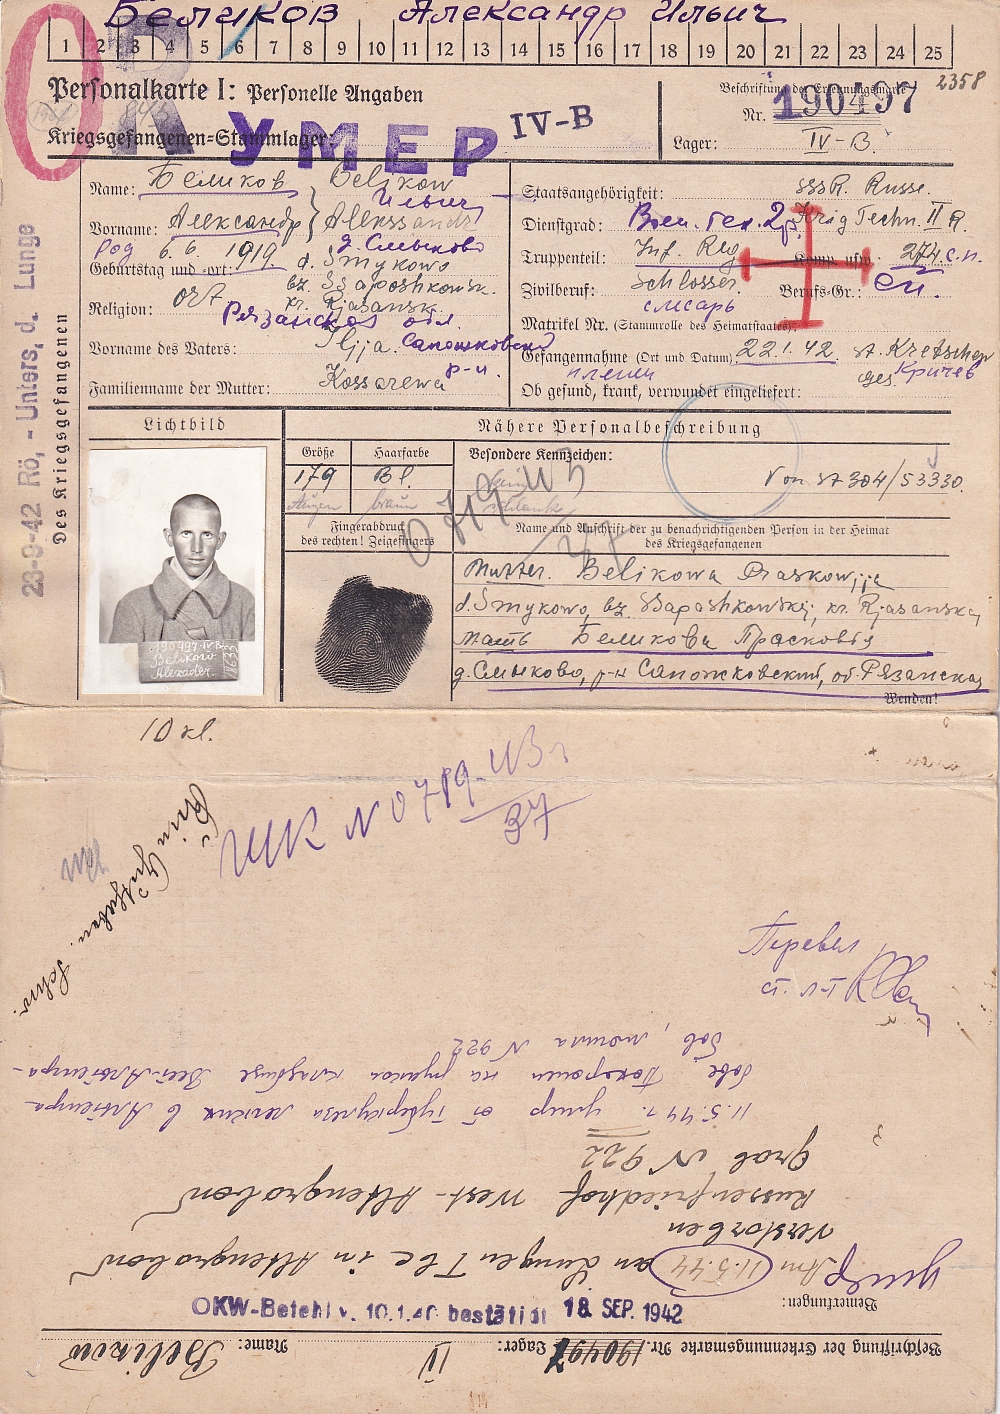 Беликов Александр Ильич
1 2 3 4 5 6 7 8 9 10 11 12 13 14 15 16 17 18 19 20 21 22 23 24 25
Personalkarte I: Personelle Angaben
Kriegsgefangenen-Stammlager: IV-B
УМЕР
Beschriftung der Erkennungsmarke
Nr. 190497
2358
Lager: IV-B.
Des Kriegsgefangenen
23-9-42 Rö,-Unters, d. Lunge
Name: Беликов Belikow
Ильич
Vorname: Александр Alekssandr
род 6.6 1919 д. Смыково
Geburtstag und -ort: d. Smykowo
bz. Ssaposhkowsk.
Religion: ort kr. Rjasansk.
Рязанской обл.
Vorname des Vaters: Iljja. Сапожковский
р-н.
Familienname der Mutter: Kossarewa
Staatsangehörigkeit: SSSR. Russe.
Dienstgrad: Воен. тех. 2р. Krig Techn. II R.
Truppenteil: Inf. Reg Komp. usw.: 274 с.п.
Zivilberuf: Schlosser. Berufs-Gr.: сп.
слесарь
Matrikel Nr. (Stammrolle des Heimatstaates):
Gefangennahme (Ort und Datum) 22.1.42. st. Kretschew
пленен Кричев
Ob gesund, krank, verwundet eingeliefert: ges.
Lichtbild
Nähere Personalbeschreibung
Größe Haarfarbe Besondere Kennzeichen:
179 Bl. Von St 304/53330.
Augen braun schlank
0719 43
Fingerabdruck
des rechten! Zeigefingers
Name und Anschrift der zu benachrichtigenden Person in der Heimat
des Kriegsgefangenen
Mutter. Belikowa Praskowjja
d. Smykowo, bz. Ssaposhkowskij, kr. Rjasanskaj
мать Беликова Прасковья
д. Смыково, р-н Сапожковский, об. Рязанская
Wenden!
190497 IV B
Belikow
Alexader.
10 kl.
ШК N 0719-43г
37
Перевел
с. л-т
11.5.44 г. умер от туберкулеза легких в Альтенгра-
бове. Похоронен на русском кладбище Вест-Альтенгра-
бов, могила N 922
умер Am 11.5.44 an Lungen Tbc in Altengrabow
verstorben
Russenfriedhof West-Altengrabow
Grab N 922
Bemerkungen:
OKW-Befehl v. 10.1.40 bestätigt 18. SEP. 1942
Beschriftung der Erkennungsmarke Nr. 190497 Lager: IV Name: Belikow